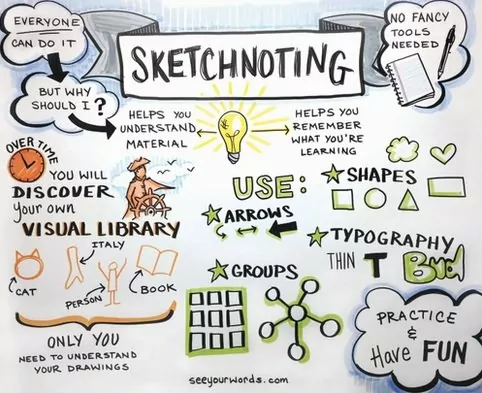 EVERYONE
CAN DO IT
SKETCHNOTING
NO FANCY
TOOLS
NEEDED
BUT WHY
SHOULD I ?
HELPS YOU
UNDERSTAND
MATERIAL
HELPS YOU
REMEMBER
WHAT YOU'RE
LEARNING
OVER TIME
YOU WILL
DISCOVER
your own
VISUAL LIBRARY
CAT
ITALY
PERSON
BOOK
ONLY YOU
NEED TO UNDERSTAND
YOUR DRAWINGS
USE:
ARROWS
GROUPS
SHAPES
TYPOGRAPHY
THIN T Bud
PRACTICE
&
Have FUN
seeyourwords.com